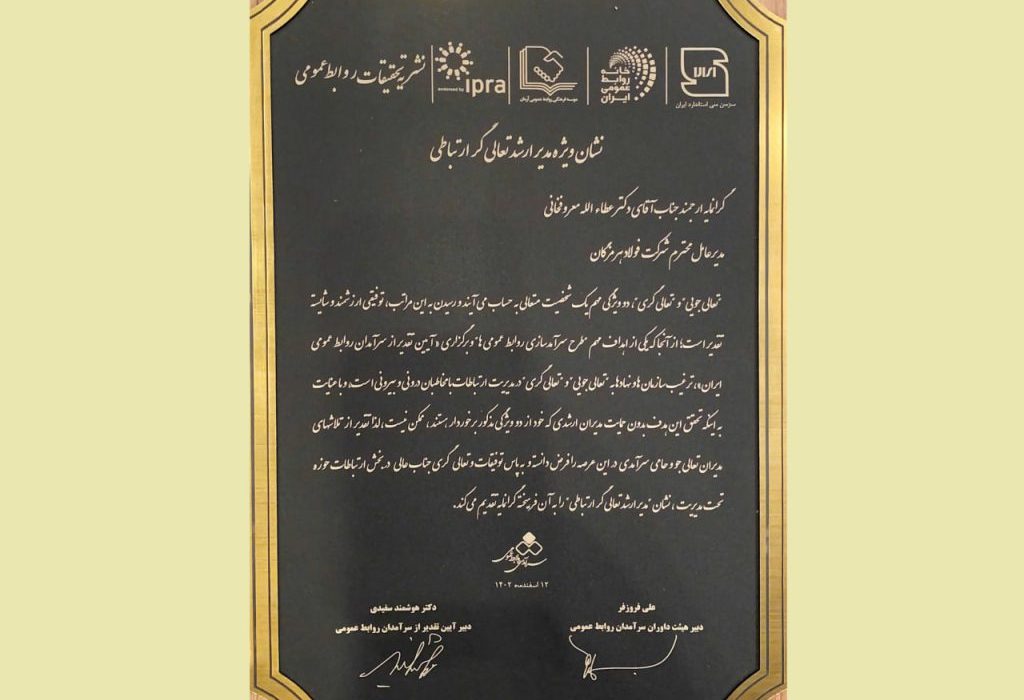 سازمان ملی استاندارد ایران
خانه
روابط
عمومی
ایران
موسسه فرهنگی روابط عمومی آرمان
endorsed by ipra
نشریه تحقیقات روابط عمومی
نشان ویژه مدیر ارشد تعالی گر ارتباطی
گرانمایه ارجمند جناب آقای دکتر عطاء الله معروفخانی
مدیرعامل محترم شرکت فولاد هرمزگان
"تعالی جویی" و "تعالی گری"، دو ویژگی مهم یک شخصیت متعالی به حساب می آیند و رسیدن به این مراتب، توفیقی ارزشمند و شایسته
تقدیر است؛ از آنجا که یکی از اهداف مهم "طرح سرآمدسازی روابط عمومی ها" و برگزاری «آیین تقدیر از سرآمدان روابط عمومی
ایران»، ترغیب سازمان ها و نهادها به "تعالی جویی" و "تعالی گری" در مدیریت ارتباطات با مخاطبان درونی و بیرونی است، و با عنایت
به اینکه تحقق این هدف بدون حمایت مدیران ارشدی که خود از دو ویژگی مذکور برخوردار هستند، ممکن نیست، لذا تقدیر از تلاشهای
مدیران تعالی جو و حامی سرآمدی در این عرصه را فرض دانسته و به پاس توفیقات و تعالی گری جناب عالی در بخش ارتباطات حوزه
تحت مدیریت، نشان "مدیر ارشد تعالی گر ارتباطی" را به آن فرهیخته گرانمایه تقدیم می کند.
۱۲ اسفندماه ۱۴۰۲
علی فروزفر
دبیر هیئت داوران سرآمدان روابط عمومی
دکتر هوشمند سفیدی
دبیر آیین تقدیر از سرآمدان روابط عمومی